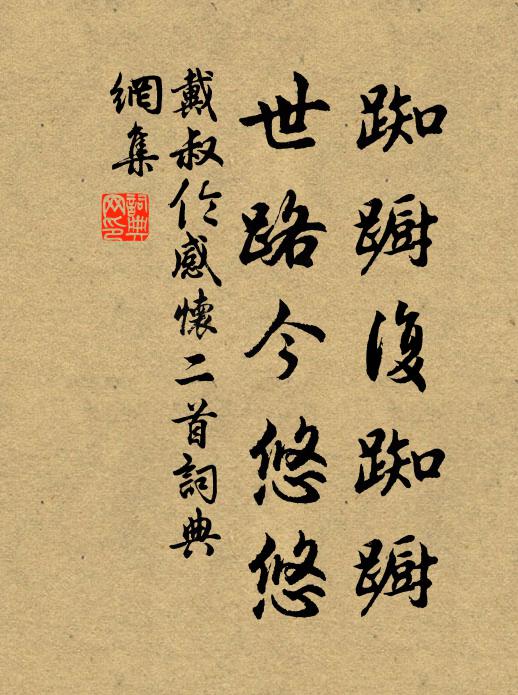 踟蹰復踟蹰
世路今悠悠
戴叔伦感懷二首詞典
網集
詞典
网印